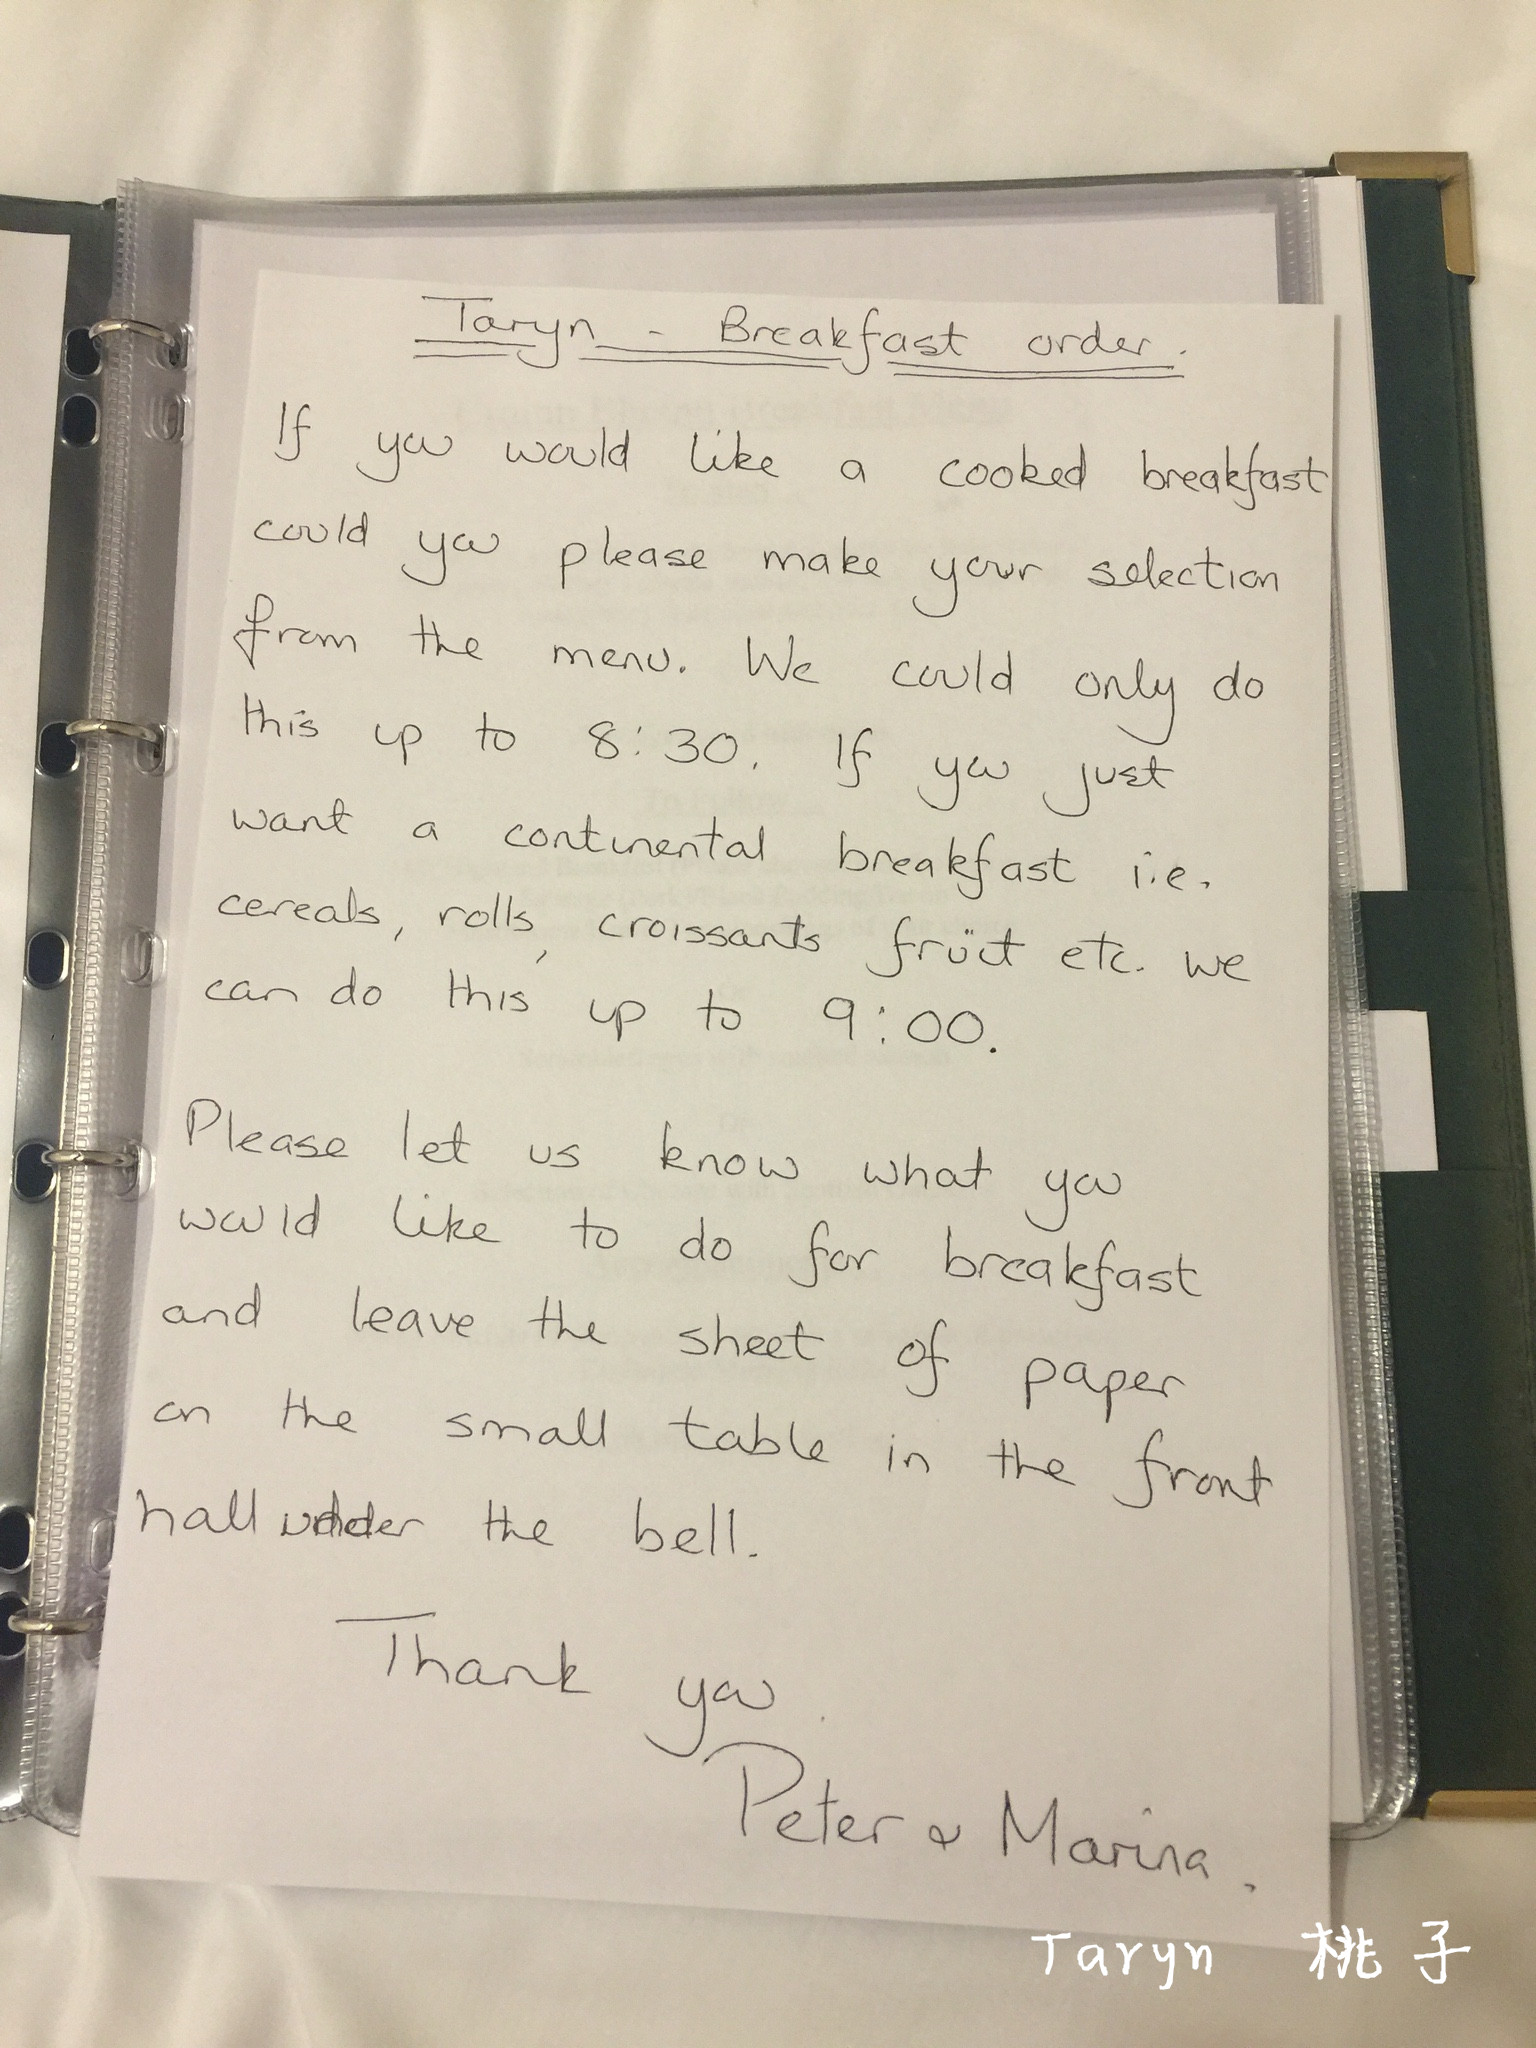 Taryn - Breakfast order.
If you would like a cooked breakfast
could you please make your selection
from the menu. We could only do
this up to 8:30. If you just
want a continental breakfast i.e.
cereals, rolls, croissants fruit etc. we
can do this up to 9:00.
Please let us know what you
would like to do for breakfast
and leave the sheet of paper
on the small table in the front
hall under the bell.
Thank you.
Peter & Marina.
Taryn 桃子